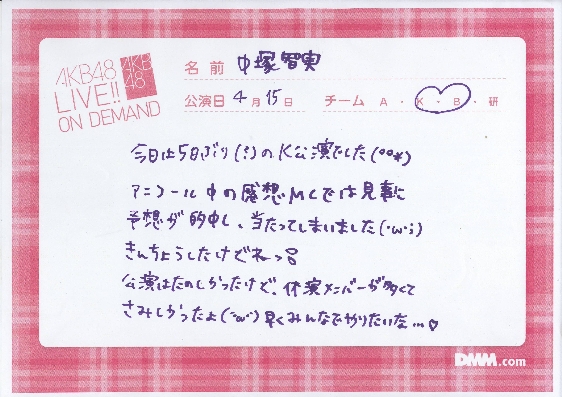 AKB48
LIVE!!
ON DEMAND
AKB
48
名前 中塚智実
公演日 4月15日 チーム A・K・B・研
今日は5日ぶり(!)のK公演でした(°°*)
アンコール中の感想MCでは見事に
予想が的中し、当たってしまいました(・ω・;)
きんちょうしたけどねっ
公演はたのしかったけど、休演メンバーが多くて
さみしかったよ(´・ω・`)早くみんなでやりたいな…♡
DMM.com